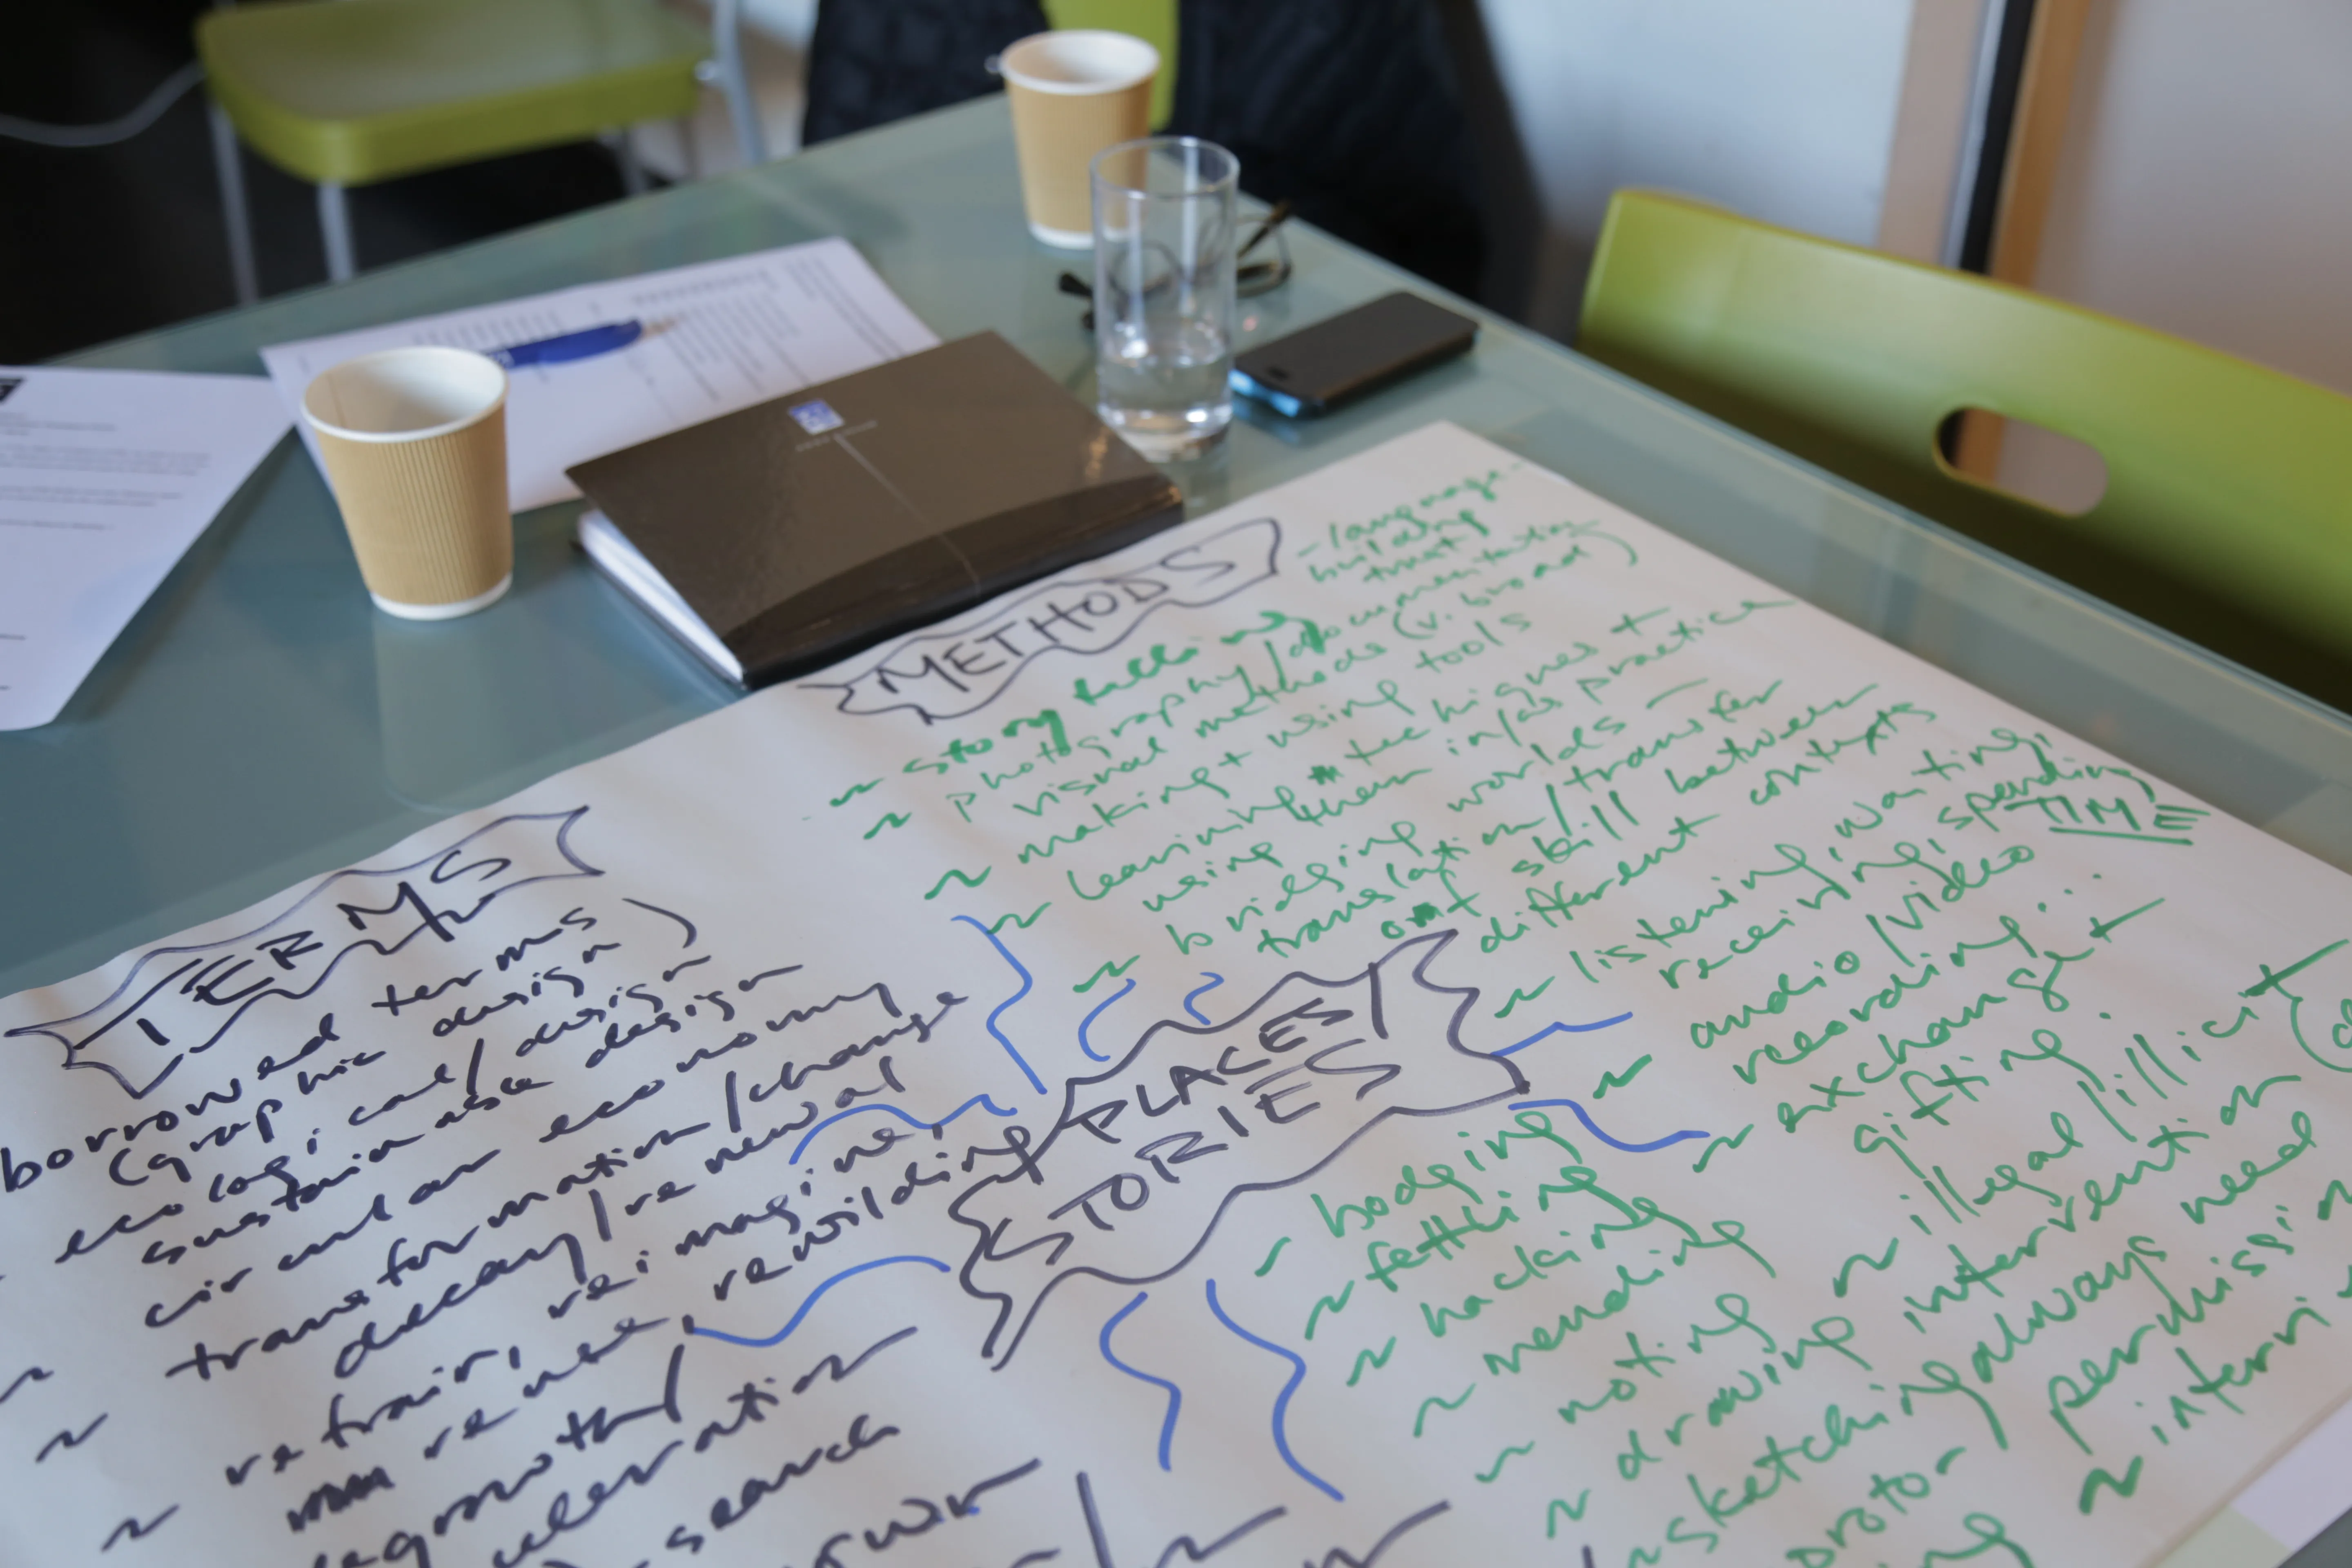 METHODS
~ story telling
~ photography/documentation
visual methods (v. broad)
- language
building
trust
~ making + using tools
~ learning techniques +
using them in/as practice
~ bridging worlds -
translation/transfer
of skill between
different contexts
~ listening, waiting,
receiving, spending
TIME
~ audio/video
recording...
~ exchange +
gifting.
~ illegal/illicit
intervention
always need
permissi
~ interri
TERMS
borrowed terms
(graphic design)
ecological/design
sustainable design
circular economy
transformation/change
decay/renewal
refrain, reimagine,
renew, rewilding
degrowth/
search
PLACES/
STORIES
~ bodging
~ fettling
~ hacking
~ mending
~ noting
~ drawing
~ sketching
protor